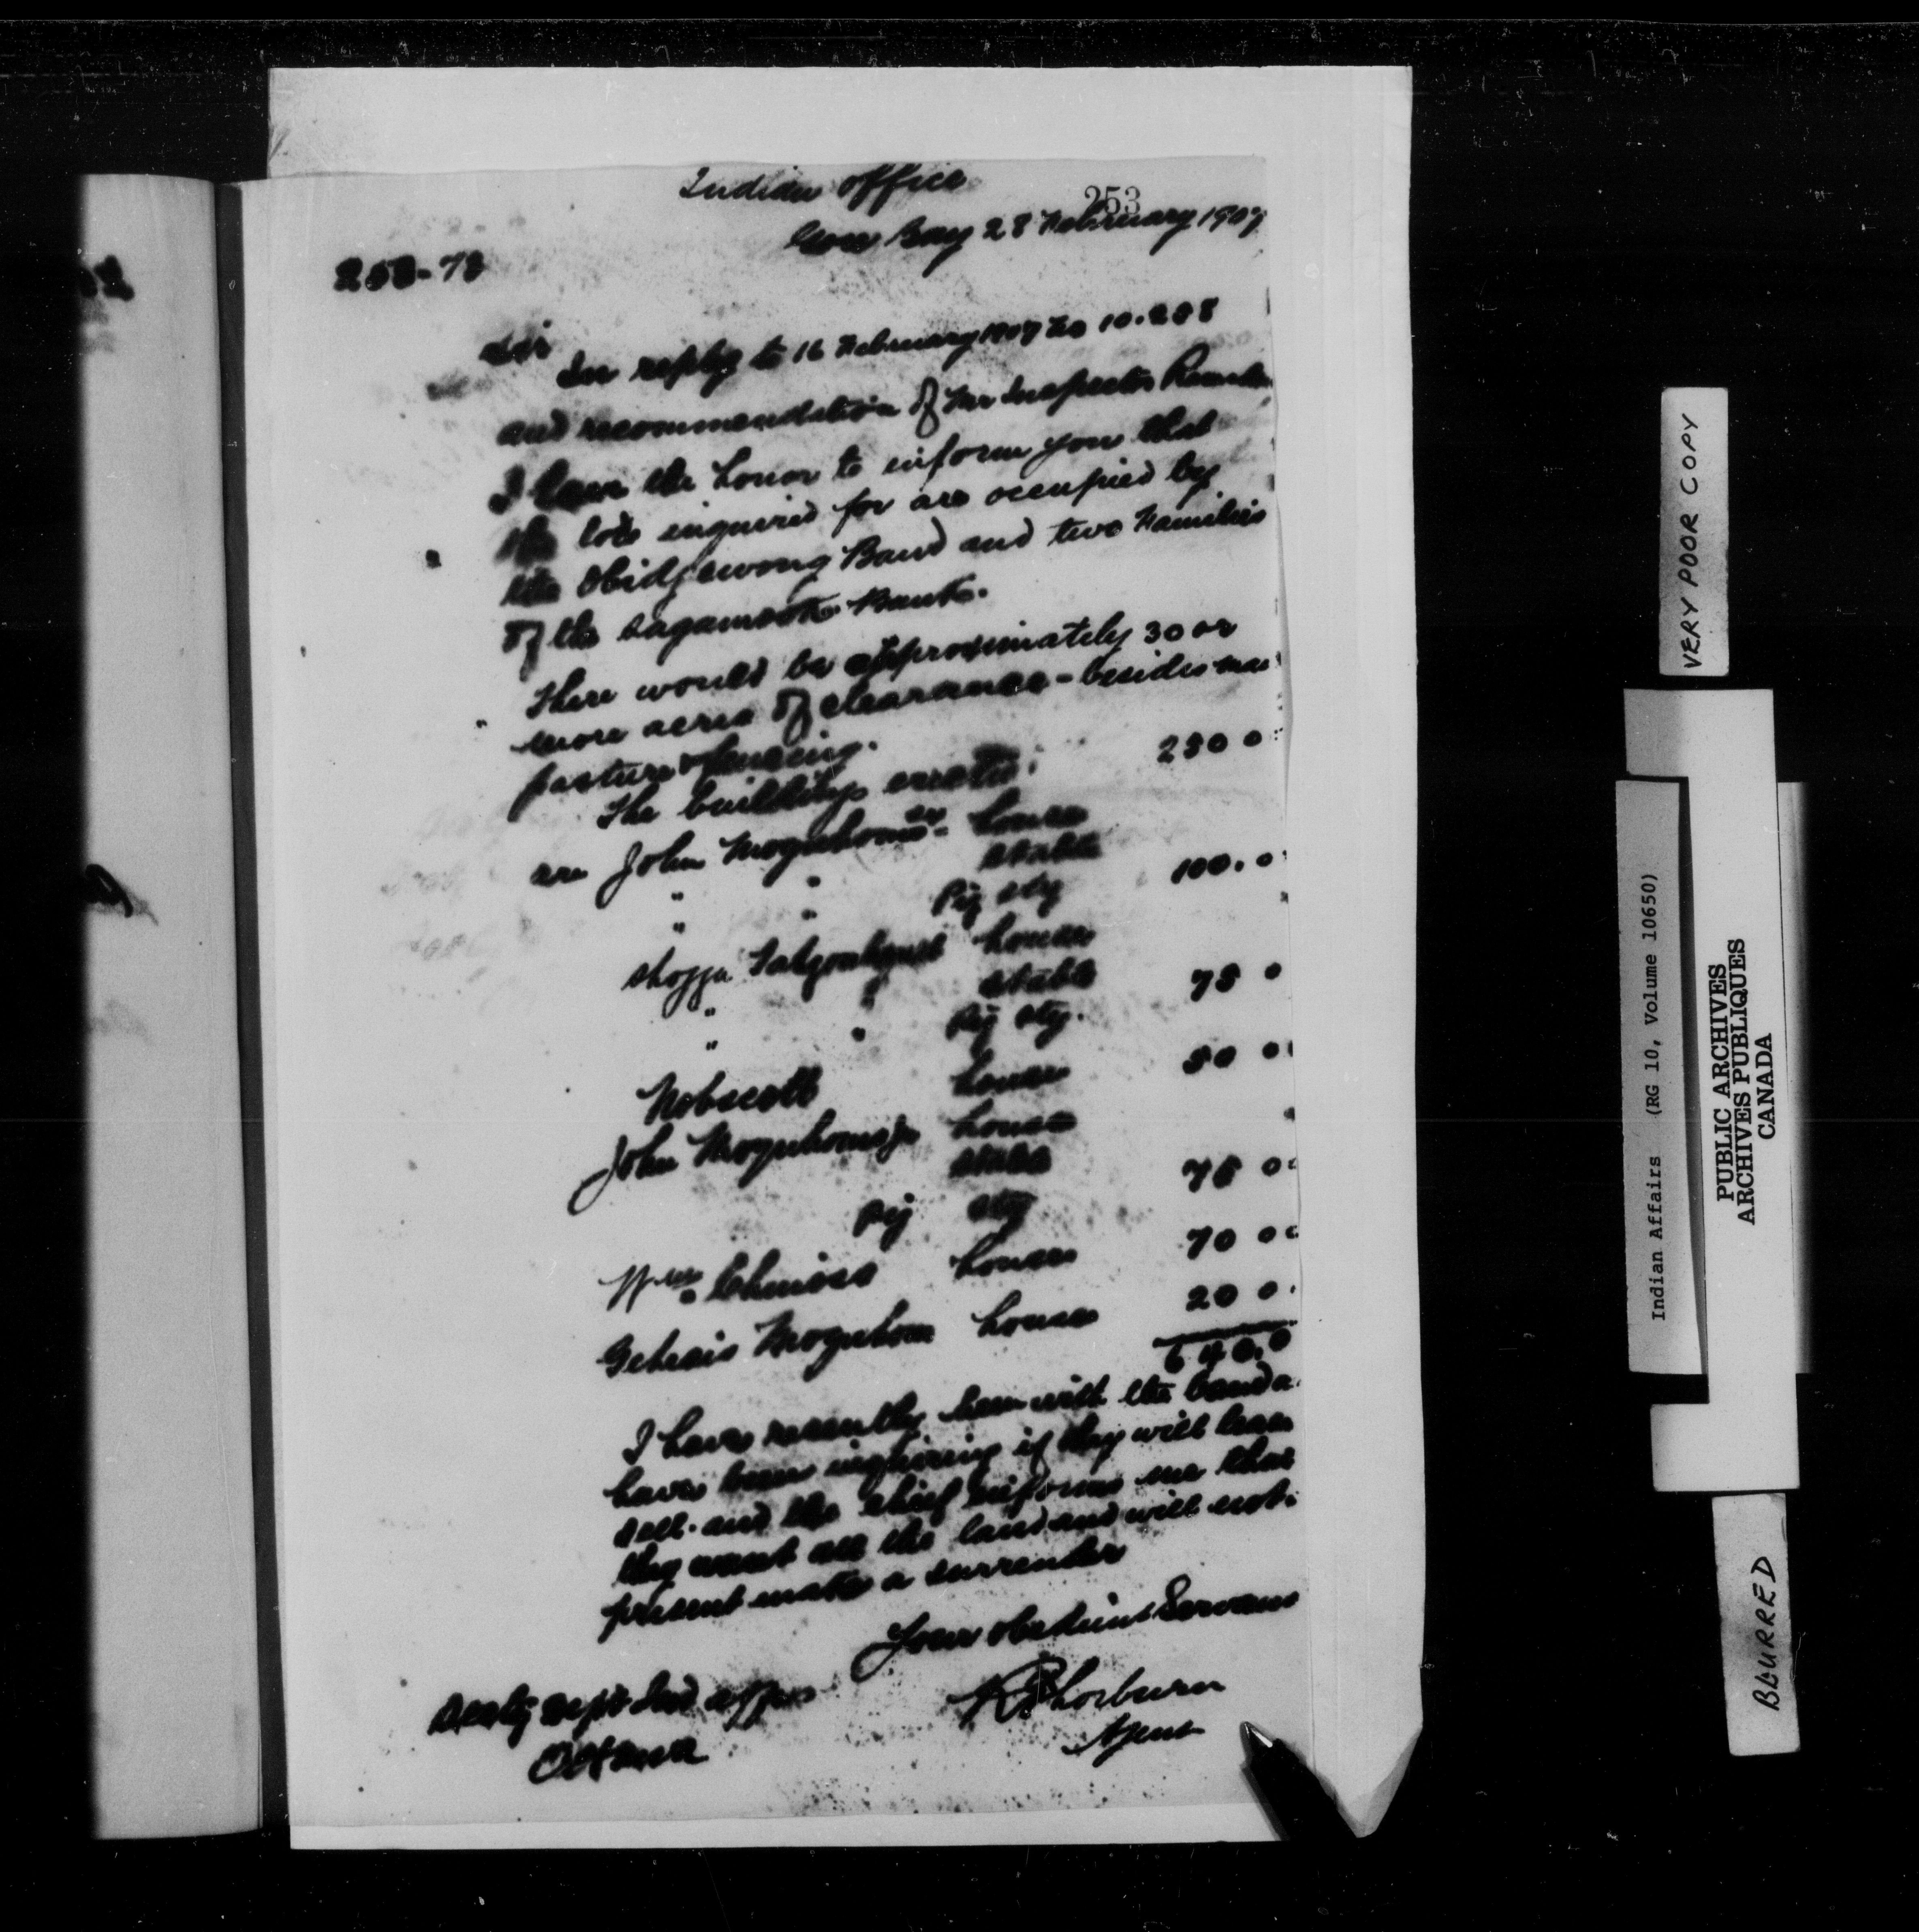 Indian Office
253
Gore Bay 28 February 1907
253-73
Sir
In reply to 16 February 1907 No 10.288
and recommendation of Mr Inspector
I have the honor to inform you that
the lots enquired for are occupied by
the Obidgewong Band and two Families
of the Band.
There would be approximately 30 or
more acres of clearance - besides
pasture fencing.
The buildings
are John house 250 0
stable
" " Pig sty 100.0
house
stable 75 0
" " Pig sty.
Nobscott house 50 0
John house
stable
Pig sty 75 0
Wm house 70 00
house 20 0
640.0
I have recently been with the band &
have been inquiring if they will lease
sell. and the chief informs me that
they want all the land and will not
present make a surrender
Your obedient Servant
R Thorburn
Agent
Secty Dept Ind Affairs
Ottawa
VERY POOR COPY
Indian Affairs (RG 10, Volume 10650)
PUBLIC ARCHIVES
ARCHIVES PUBLIQUES
CANADA
BLURRED